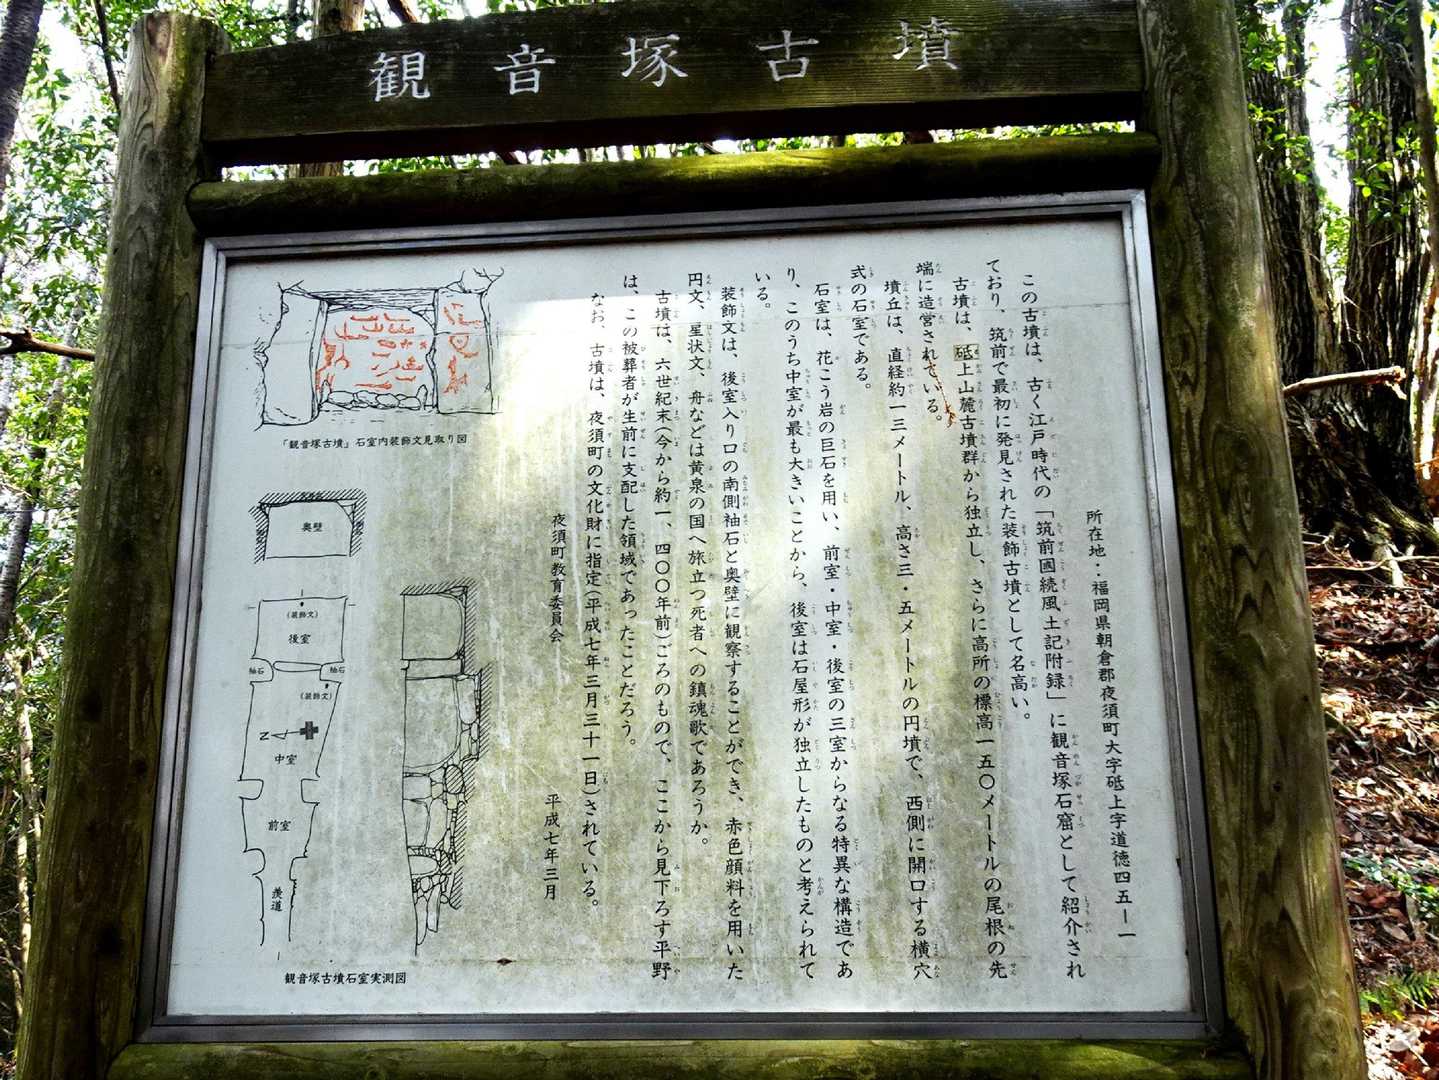 観音塚古墳
所在地：福岡県朝倉郡夜須町大字砥上字道徳四五ー一
この古墳は、古く江戸時代の「筑前國続風土記附録」に観音塚石窟として紹介され
ており、筑前で最初に発見された装飾古墳として名高い。
古墳は、砥上山麓古墳群から独立し、さらに高所の標高一五〇メートルの尾根の先
端に造営されている。
墳丘は、直経約一三メートル、高さ三・五メートルの円墳で、西側に開口する横穴
式の石室である。
石室は、花こう岩の巨石を用い、前室・中室・後室の三室からなる特異な構造であ
り、このうち中室が最も大きいことから、後室は石屋形が独立したものと考えられて
いる。
装飾文は、後室入り口の南側袖石と奥壁に観察することができ、赤色顔料を用いた
円文、星状文、舟などは黄泉の国へ旅立つ死者への鎮魂歌であろうか。
古墳は、六世紀末(今から約一、四〇〇年前)ごろのもので、ここから見下ろす平野
は、この被葬者が生前に支配した領域であったことだろう。
なお、古墳は、夜須町の文化財に指定(平成七年三月三十一日)されている。
平成七年三月
夜須町教育委員会
「観音塚古墳」石室内装飾文見取り図
奥壁
(装飾文)
後室
袖石
袖石
(装飾文)
N
中室
前室
羨道
観音塚古墳石室実測図